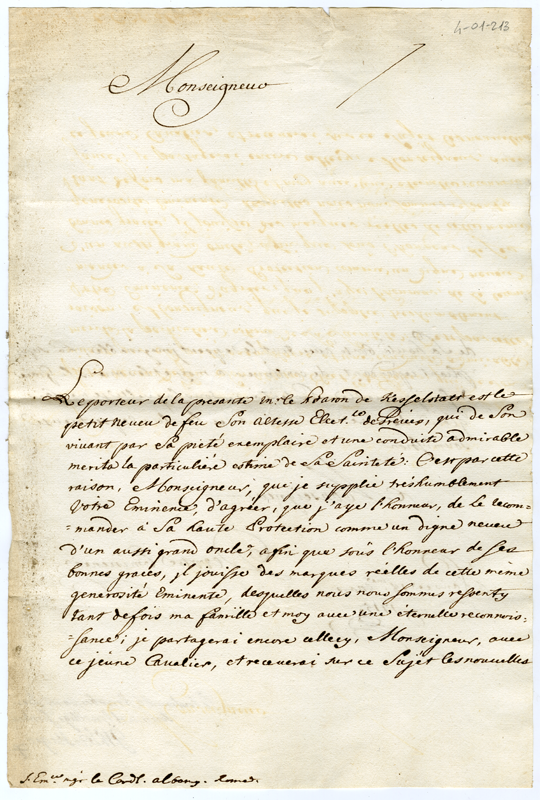 4-01-213
Monseigneur
Le porteur de la presente mr: le Baron de Kesselstatt est le
petit Neveu de feu Son Altesse Elect.le de Trèves, qui de Son
vivant par Sa pieté exemplaire et une conduite admirable
merita la particuliére estime de Sa Sainteté: C'est par cette
raison, Monseigneur, que je supplie trèshumblement
Vôtre Eminence, d'agréer, que j'aye l'honneur, de Le recom-
=mander à Sa haute Protection comme un digne neveu
d'un aussi grand oncle, afin que soûs l'honneur de Ses
bonnes graces, il jouisse des marques réelles de cette même
generosité Eminente, desquelles nous nous sommes ressenty
tant de fois ma famille et moy avec une éternelle reconnois-
=sance; je partagerai encore cellecy, Monseigneur, avec
ce jeune Cavalier, et recevrai sur ce Sujet les nouvelles
S. Em.ce mgr le Cardl. albany. Rome.